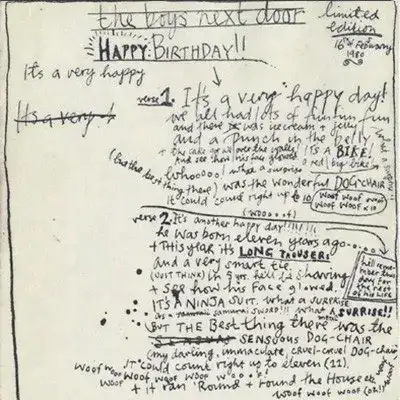 the boys next door
limited
edition
16th February
1980
HAPPY BIRTHDAY!!
It's a very happy
It's a very
verse 1. It's a very happy day!
we all had lots of fun fun fun
and there was icecream & jelly
and a punch in the belly
IT'S A BIKE!
And see how his face glowed a red bike
Whoooo! what a surprise
(but the best thing there) was the wonderful DOG-CHAIR
it could count right up to 10
woof woof woof
woof woof x 10
(wooof)
verse 2. It's another happy day!!!!!!!
he was born eleven years ago.....
+ THIS year it's LONG TROUSERS
and a very smart tie
(JUST THINK) in 5 yrs. he'll be shaving
+ see how his face glowed.
he'll remember this
day for the
rest
of his life
IT'S A NINJA SUIT. what a SURPRISE
samurai SWORD!!! what a SURPRISE!!
BUT THE Best thing there was the
SENSUOUS DOG-CHAIR
(my darling, immaculate, cruel-cruel DOG-chair
IT could count right up to eleven (11).
woof woof woof woof woof w....o....o.f
+ it ran 'Round + round the House etc
woof woof woof (oh!!)